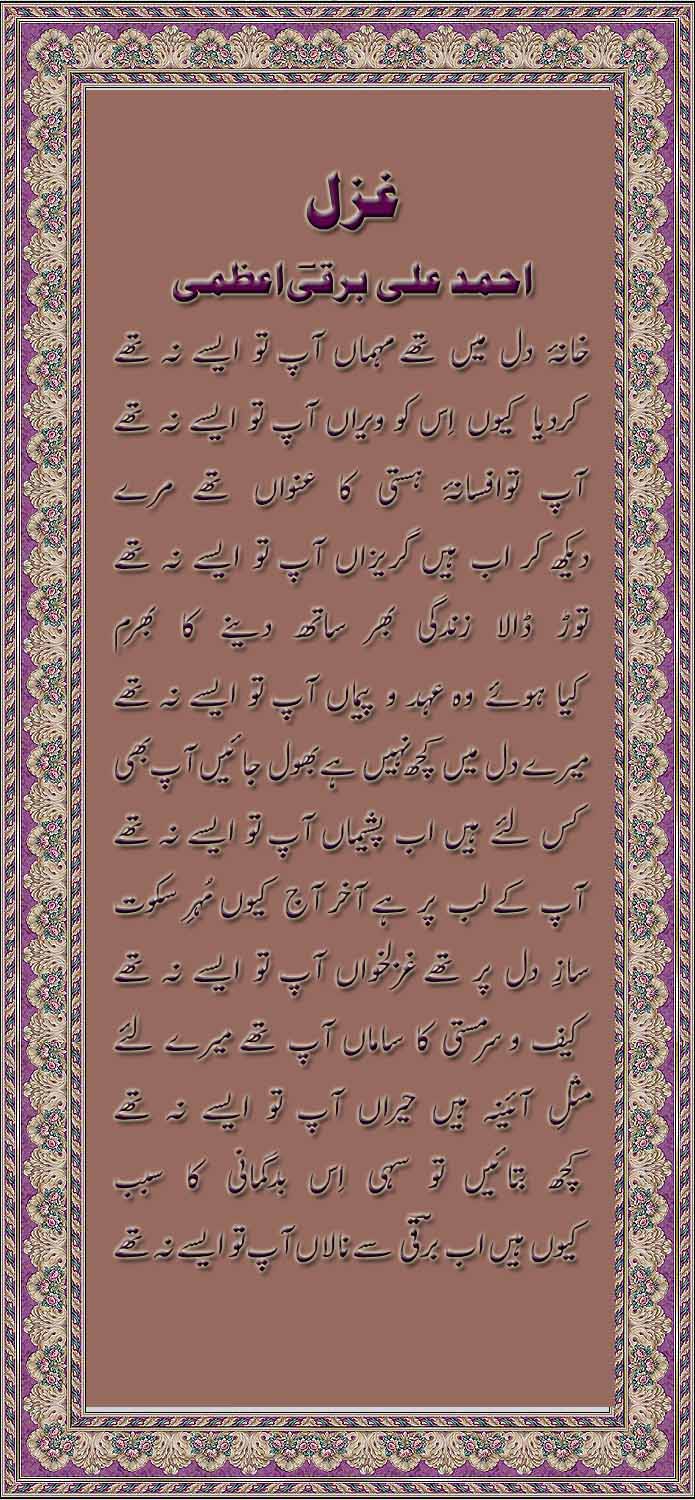 غزل
احمد علی برقیؔ اعظمی
خانۂ دل میں تھے مہماں آپ تو ایسے نہ تھے
کردیا کیوں اِس کو ویراں آپ تو ایسے نہ تھے
آپ توافسانۂ ہستی کا عنواں تھے مرے
دیکھ کر اب ہیں گریزاں آپ تو ایسے نہ تھے
توڑ ڈالا زندگی بھر ساتھ دینے کا بھرم
کیا ہوئے وہ عہد و پیماں آپ تو ایسے نہ تھے
میرے دل میں کچھ نہیں ہے بھول جائیں آپ بھی
کس لئے ہیں اب پشیماں آپ تو ایسے نہ تھے
آپ کے لب پر ہے آخر آج کیوں مُہرِ سکوت
سازِ دل پر تھے غزلخواں آپ تو ایسے نہ تھے
کیف و سرمستی کا ساماں آپ تھے میرے لئے
مثلِ آئینہ ہیں حیراں آپ تو ایسے نہ تھے
کچھ بتائیں تو سہی اِس بدگمانی کا سبب
کیوں ہیں اب برقیؔ سے نالاں آپ تو ایسے نہ تھے